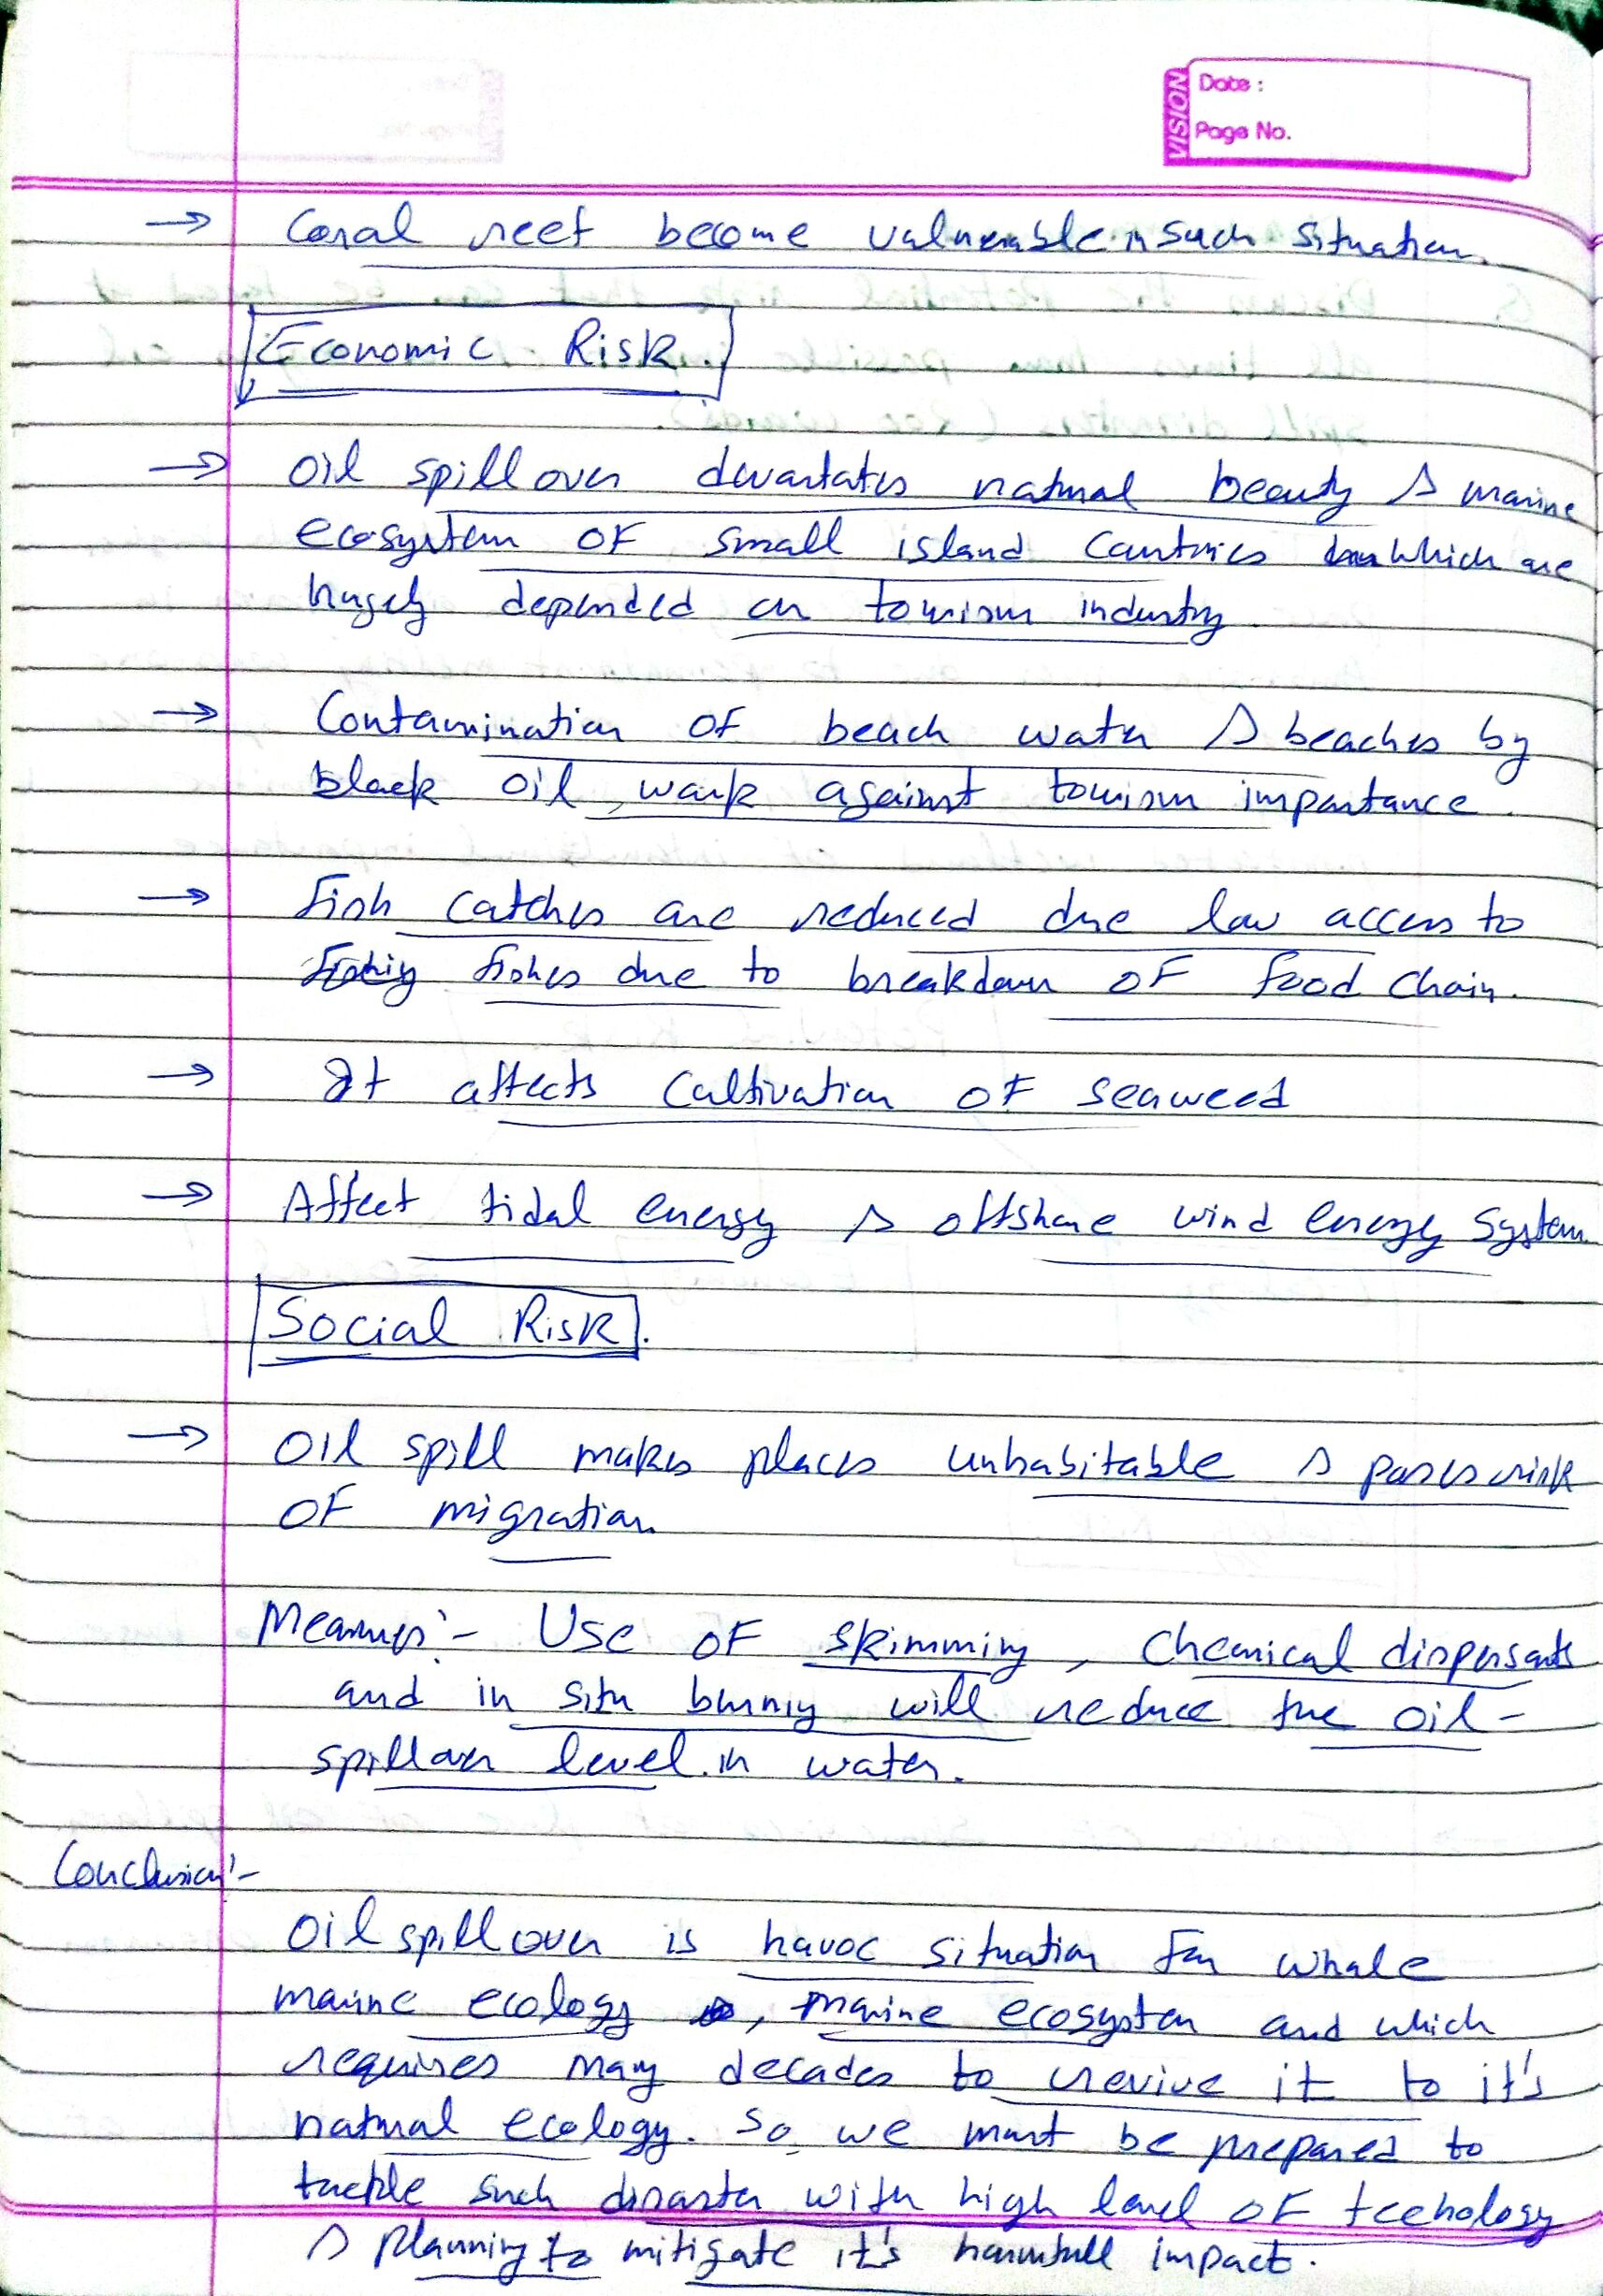 VISION
Date :
Page No.
→ Coral reef become vulnerable in such situation.
Economic Risk.
→ Oil spill over devastates natural beauty & marine
ecosystem of small island countries which are
hugely depended on tourism industry
→ Contamination of beach water & beaches by
black oil, work against tourism importance.
→ Fish catches are reduced due low access to
fishes due to breakdown of food chain.
→ It affects cultivation of seaweed
→ Affect tidal energy & offshore wind energy system
Social Risk.
→ Oil spill makes places unhabitable & poses risk
of migration
Measures:- Use of skimming, chemical dispersants
and in situ burning will reduce the oil-
spillover level in water.
Conclusion:-
Oil spill over is havoc situation for whole
marine ecology, marine ecosystem and which
requires many decades to revive it to it's
natural ecology. So, we must be prepared to
tackle such disaster with high level of tcehology
& planning to mitigate it's harmfull impact.